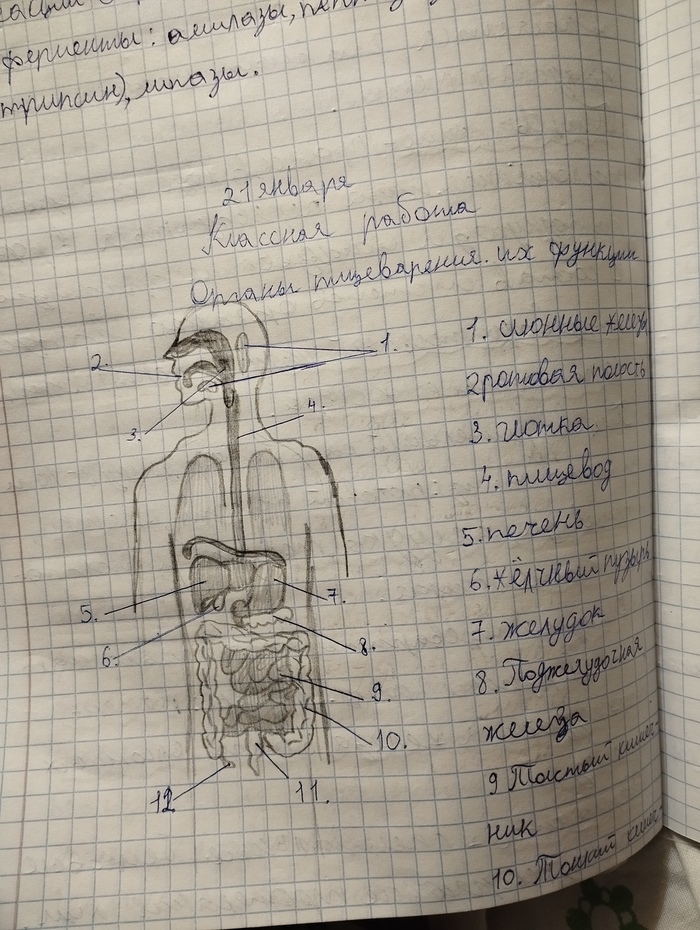 ферменты: амилазы,
трипсин), липазы.
21 января
Классная работа
Органы пищеварения. их функции
1. слюнные желез
2 ротовая полость
3. глотка
4. пищевод
5. печень
6. жёлчный пузырь
7. желудок
8. Поджелудочная
железа
9 Толстый кишеч-
ник
10. Тонкий кишеч-
1.
2
3.
4.
5.
6.
7.
8.
9.
10.
11.
12